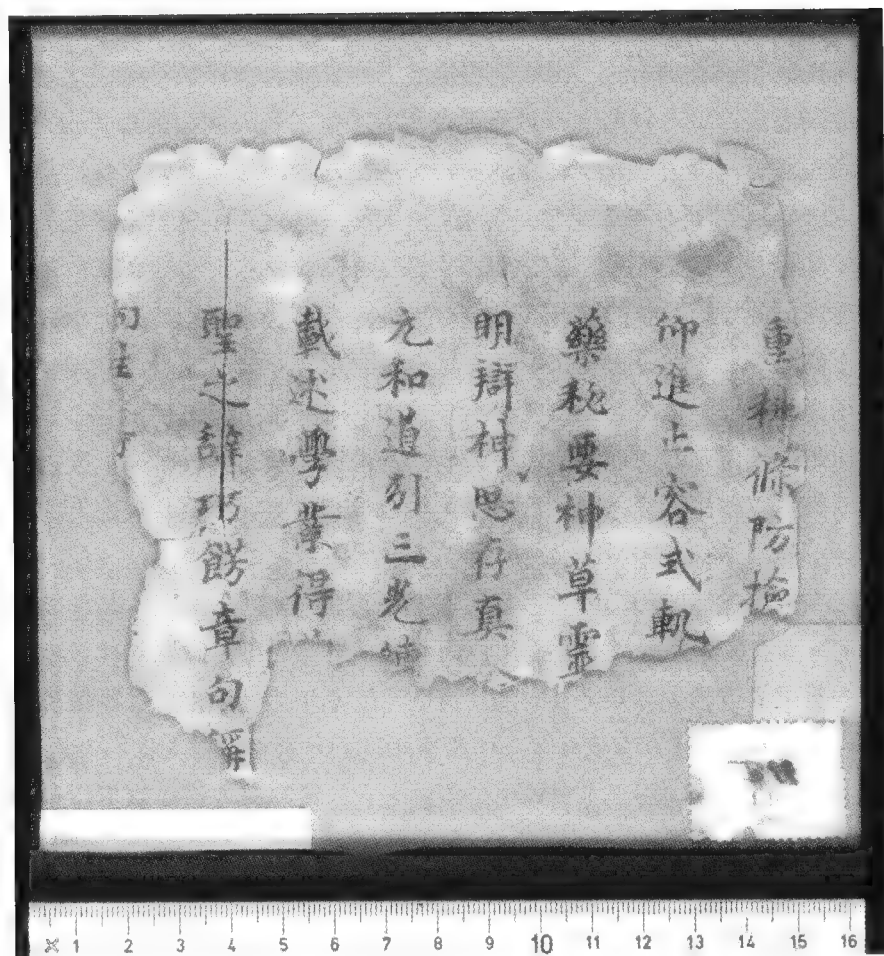 重條防撿
仰進止容式軌
藥秘要神草靈
明辯神思存真
元和道引三光
載述學業得
聖之辭巧餝章句
句注
1 2 3 4 5 6 7 8 9 10 11 12 13 14 15 16